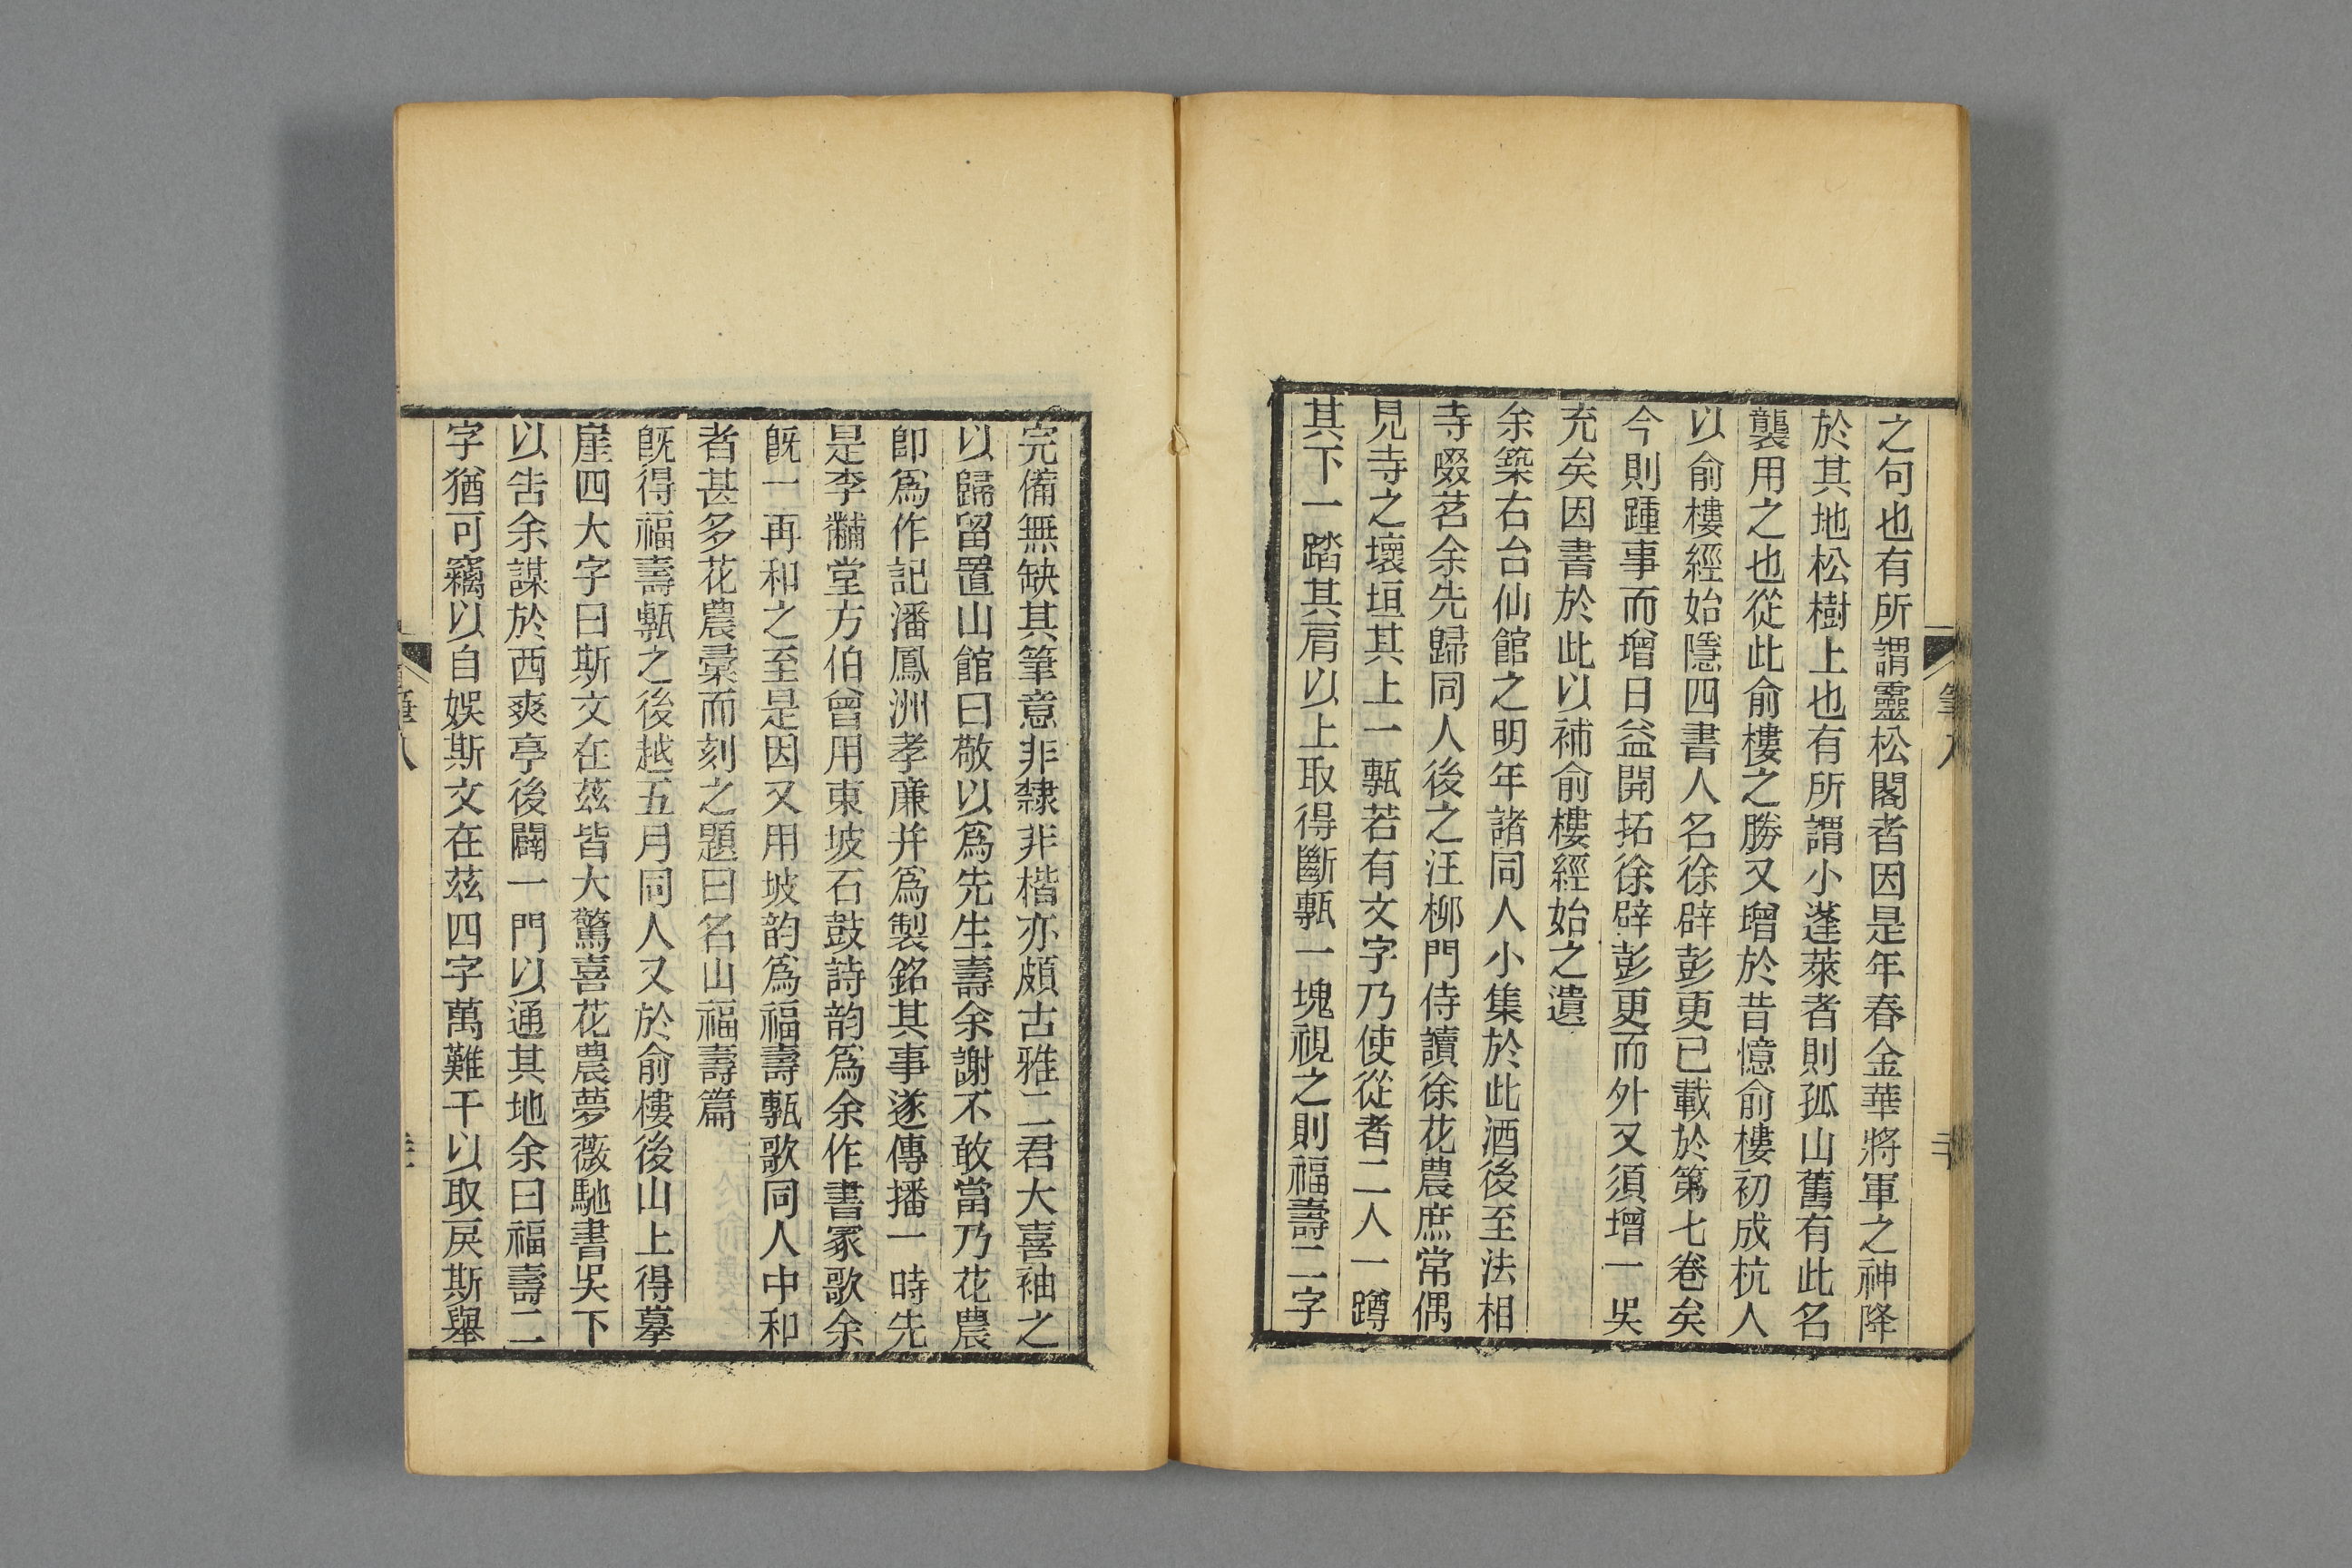 之句也有所謂靈松閣者因是年春金華將軍之神降
於其地松樹上也有所謂小蓬萊者則孤山舊有此名
襲用之也從此俞樓之勝又增於昔憶俞樓初成杭人
以俞樓經始隱四書人名徐辟彭更已載於第七卷矣
今則踵事而增日益開拓徐辟彭更而外又須增一吳
充矣因書於此以補俞樓經始之遺
余築右台仙館之明年諸同人小集於此酒後至法相
寺啜茗余先歸同人後之汪柳門侍讀徐花農庶常偶
見寺之壞垣其上一甎若有文字乃使從者二人一蹲
其下一踏其肩以上取得斷甎一塊視之則福壽二字
完備無缺其筆意非隸非楷亦頗古雅二君大喜袖之
以歸留置山館曰敬以爲先生壽余謝不敢當乃花農
卽爲作記潘鳳洲孝廉幷爲製銘其事遂傳播一時先
是李黼堂方伯曾用東坡石鼓詩韵爲余作書冢歌余
旣一再和之至是因又用坡韵爲福壽甎歌同人中和
者甚多花農彚而刻之題曰名山福壽篇
旣得福壽甎之後越五月同人又於俞樓後山上得摹
崖四大字曰斯文在茲皆大驚喜花農夢薇馳書吳下
以告余謀於西爽亭後闢一門以通其地余曰福壽二
字猶可竊以自娛斯文在茲四字萬難干以取戾斯舉
筆八
筆八